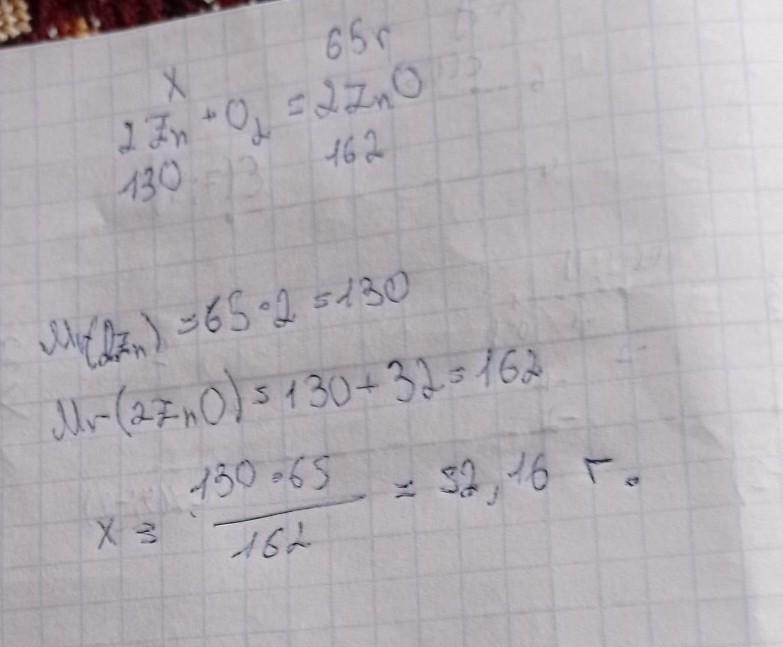 65г
x
2Zn + O2 = 2ZnO
130 162
Mr(2Zn) = 65·2 = 130
Mr(2ZnO) = 130 + 32 = 162
x = 130·65 / 162 = 52,16 г.